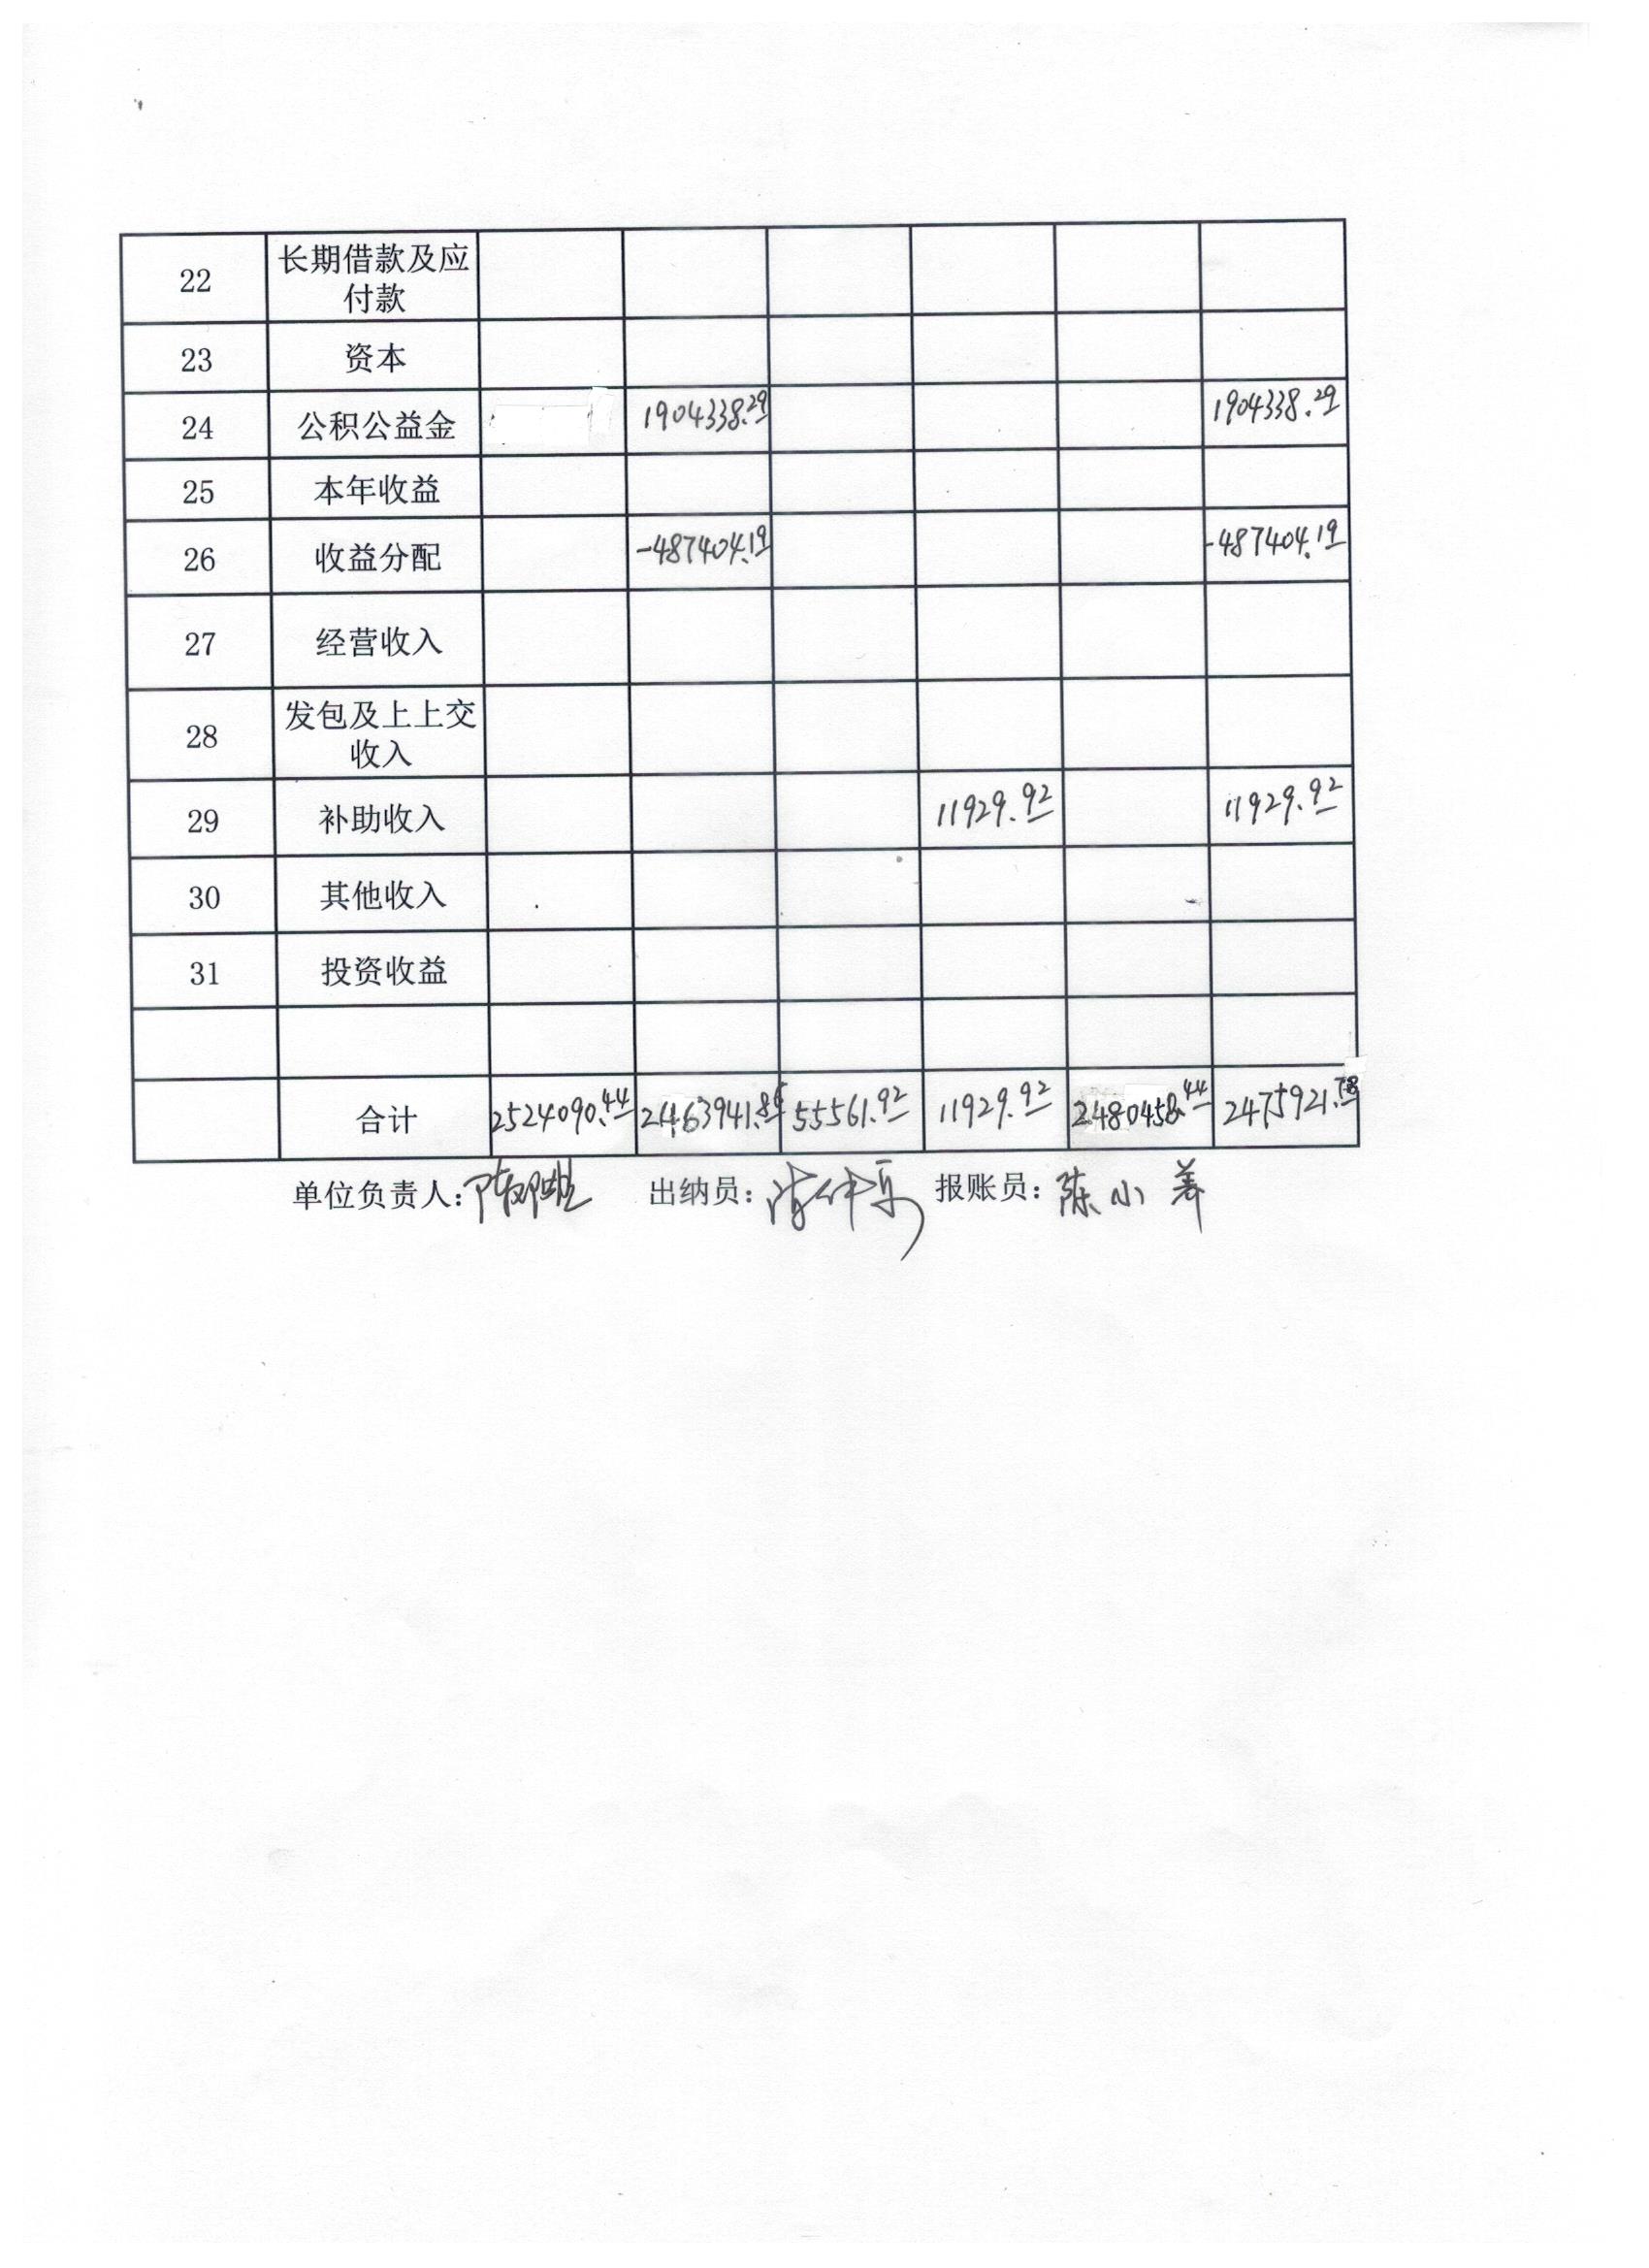 22 长期借款及应
付款
23 资本
24 公积公益金 1904338.29 1904338.29
25 本年收益
26 收益分配 -487404.19 -487404.19
27 经营收入
28 发包及上上交
收入
29 补助收入 11929.92 11929.92
30 其他收入
31 投资收益
合计 2524090.44 55561.92 11929.92 2480458.44 2475921.78
单位负责人: 出纳员: 报账员:陈小